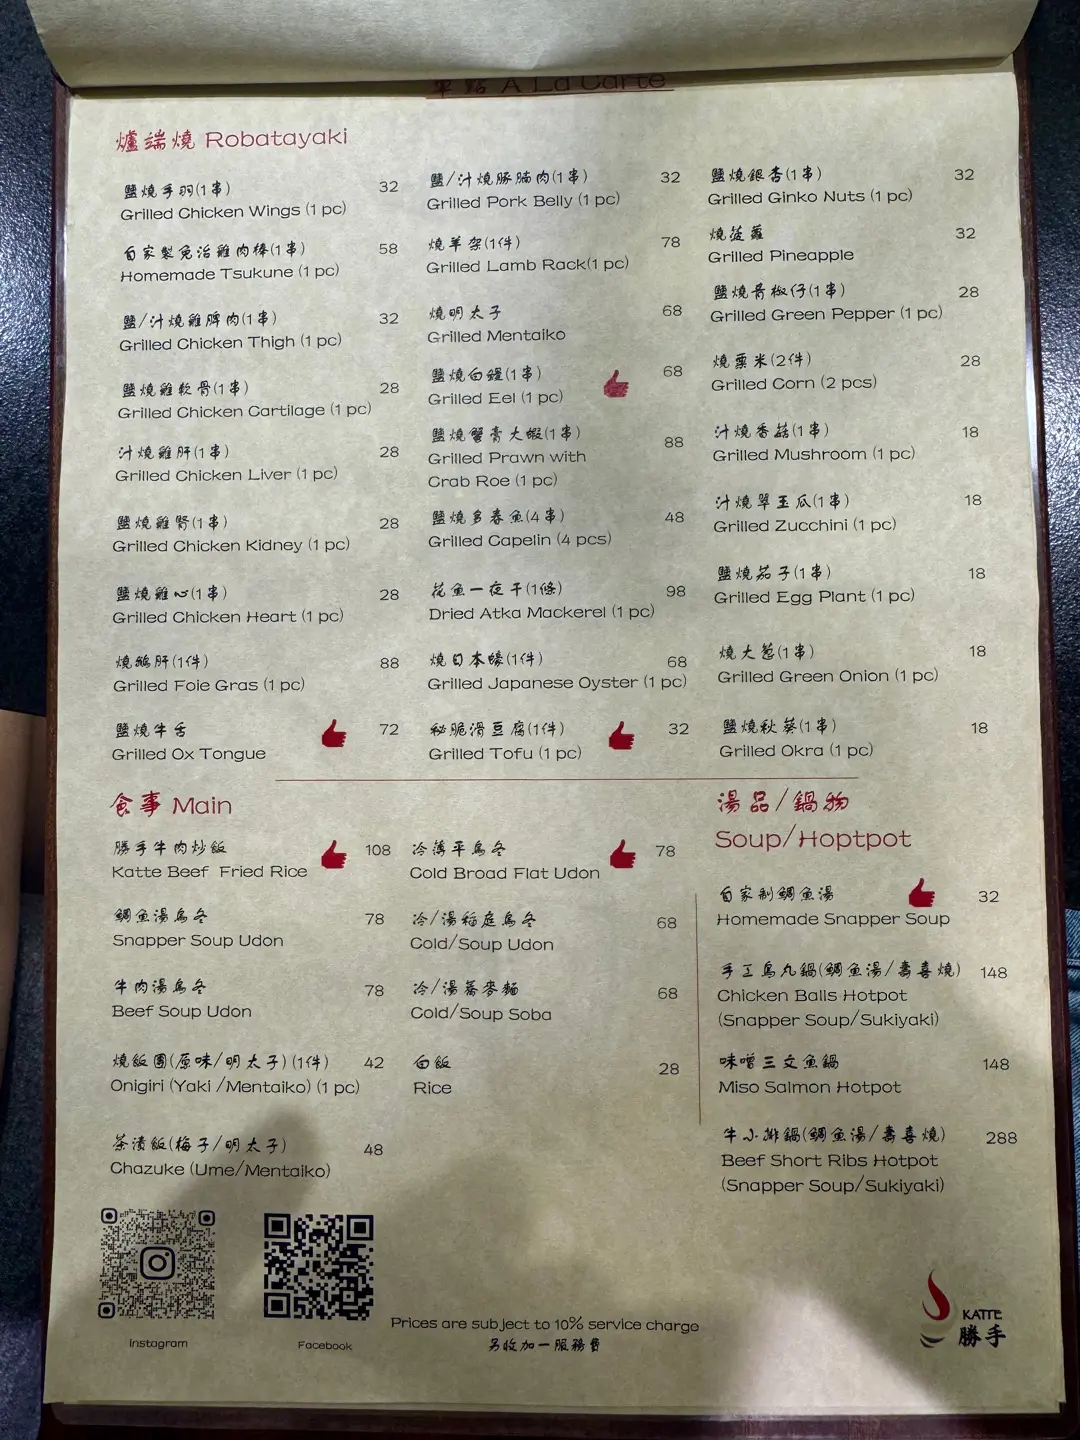 單點 A La Carte
爐端燒 Robatayaki
鹽燒手羽(1串) 32
Grilled Chicken Wings (1 pc)
自家製免治雞肉棒(1串) 58
Homemade Tsukune (1 pc)
鹽/汁燒雞脾肉(1串) 32
Grilled Chicken Thigh (1 pc)
鹽燒雞軟骨(1串) 28
Grilled Chicken Cartilage (1 pc)
汁燒雞肝(1串) 28
Grilled Chicken Liver (1 pc)
鹽燒雞腎(1串) 28
Grilled Chicken Kidney (1 pc)
鹽燒雞心(1串) 28
Grilled Chicken Heart (1 pc)
燒鵝肝(1件) 88
Grilled Foie Gras (1 pc)
鹽燒牛舌 72
Grilled Ox Tongue
鹽/汁燒豚腩肉(1串) 32
Grilled Pork Belly (1 pc)
燒羊架(1件) 78
Grilled Lamb Rack(1 pc)
燒明太子 68
Grilled Mentaiko
鹽燒白鱔(1串) 68
Grilled Eel (1 pc)
鹽燒蟹膏大蝦(1串) 88
Grilled Prawn with
Crab Roe (1 pc)
鹽燒多春魚(4串) 48
Grilled Capelin (4 pcs)
花魚一夜干(1條) 98
Dried Atka Mackerel (1 pc)
燒日本蠔(1件) 68
Grilled Japanese Oyster (1 pc)
秘脆滑豆腐(1件) 32
Grilled Tofu (1 pc)
鹽燒銀杏(1串) 32
Grilled Ginko Nuts (1 pc)
燒菠蘿 32
Grilled Pineapple
鹽燒青椒仔(1串) 28
Grilled Green Pepper (1 pc)
燒粟米(2件) 28
Grilled Corn (2 pcs)
汁燒香菇(1串) 18
Grilled Mushroom (1 pc)
汁燒翠玉瓜(1串) 18
Grilled Zucchini (1 pc)
鹽燒茄子(1串) 18
Grilled Egg Plant (1 pc)
燒大蔥(1串) 18
Grilled Green Onion (1 pc)
鹽燒秋葵(1串) 18
Grilled Okra (1 pc)
食事 Main
勝手牛肉炒飯 108
Katte Beef Fried Rice
鯛魚湯烏冬 78
Snapper Soup Udon
牛肉湯烏冬 78
Beef Soup Udon
燒飯團(原味/明太子)(1件) 42
Onigiri (Yaki /Mentaiko) (1 pc)
茶漬飯(梅子/明太子) 48
Chazuke (Ume/Mentaiko)
冷薄平烏冬 78
Cold Broad Flat Udon
冷/湯稻庭烏冬 68
Cold/Soup Udon
冷/湯蕎麥麵 68
Cold/Soup Soba
白飯 28
Rice
湯品/鍋物
Soup/Hoptpot
自家制鯛魚湯 32
Homemade Snapper Soup
手工鳥丸鍋(鯛魚湯/壽喜燒) 148
Chicken Balls Hotpot
(Snapper Soup/Sukiyaki)
味噌三文魚鍋 148
Miso Salmon Hotpot
牛小排鍋(鯛魚湯/壽喜燒) 288
Beef Short Ribs Hotpot
(Snapper Soup/Sukiyaki)
Instagram
Facebook
Prices are subject to 10% service charge
另收加一服務費
KATTE
勝手